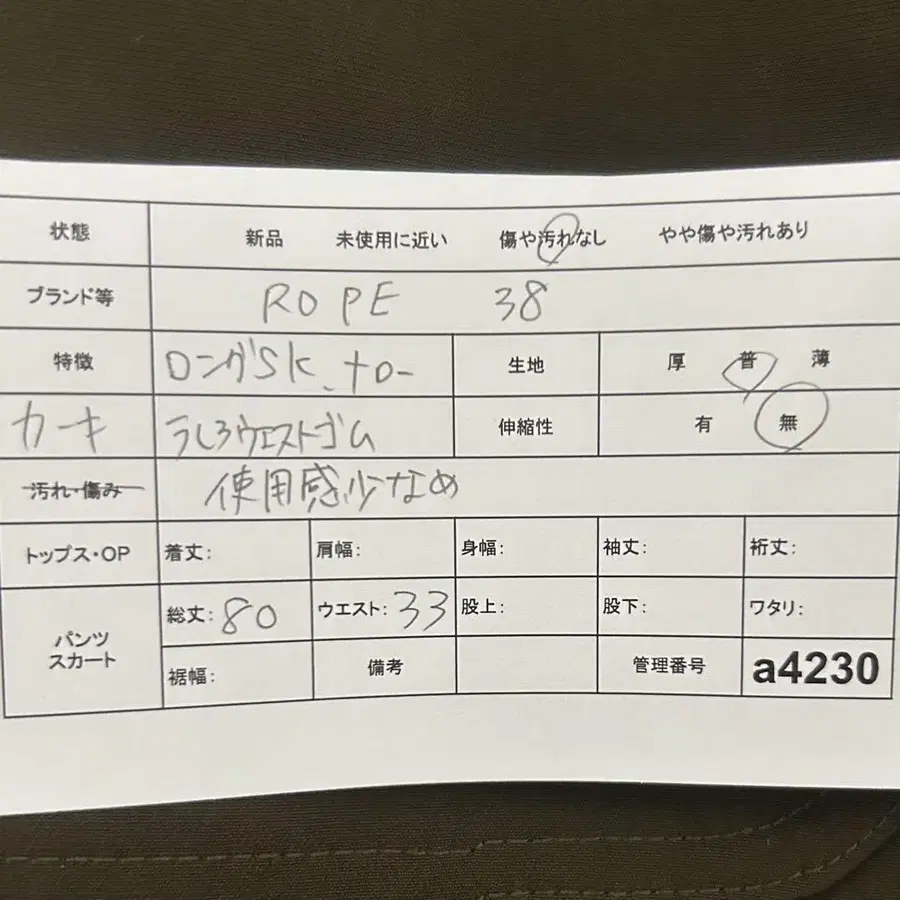 状態 新品 未使用に近い 傷や汚れなし やや傷や汚れあり
ブランド等 ROPE 38
特徴 ロングSK、ナロー 生地 厚 普 薄
カーキ うしろウエストゴム 伸縮性 有 無
汚れ・傷み 使用感少なめ
トップス・OP 着丈: 肩幅: 身幅: 袖丈: 裄丈:
パンツ スカート 総丈: 80 ウエスト: 33 股上: 股下: ワタリ:
裾幅: 備考 管理番号 a4230